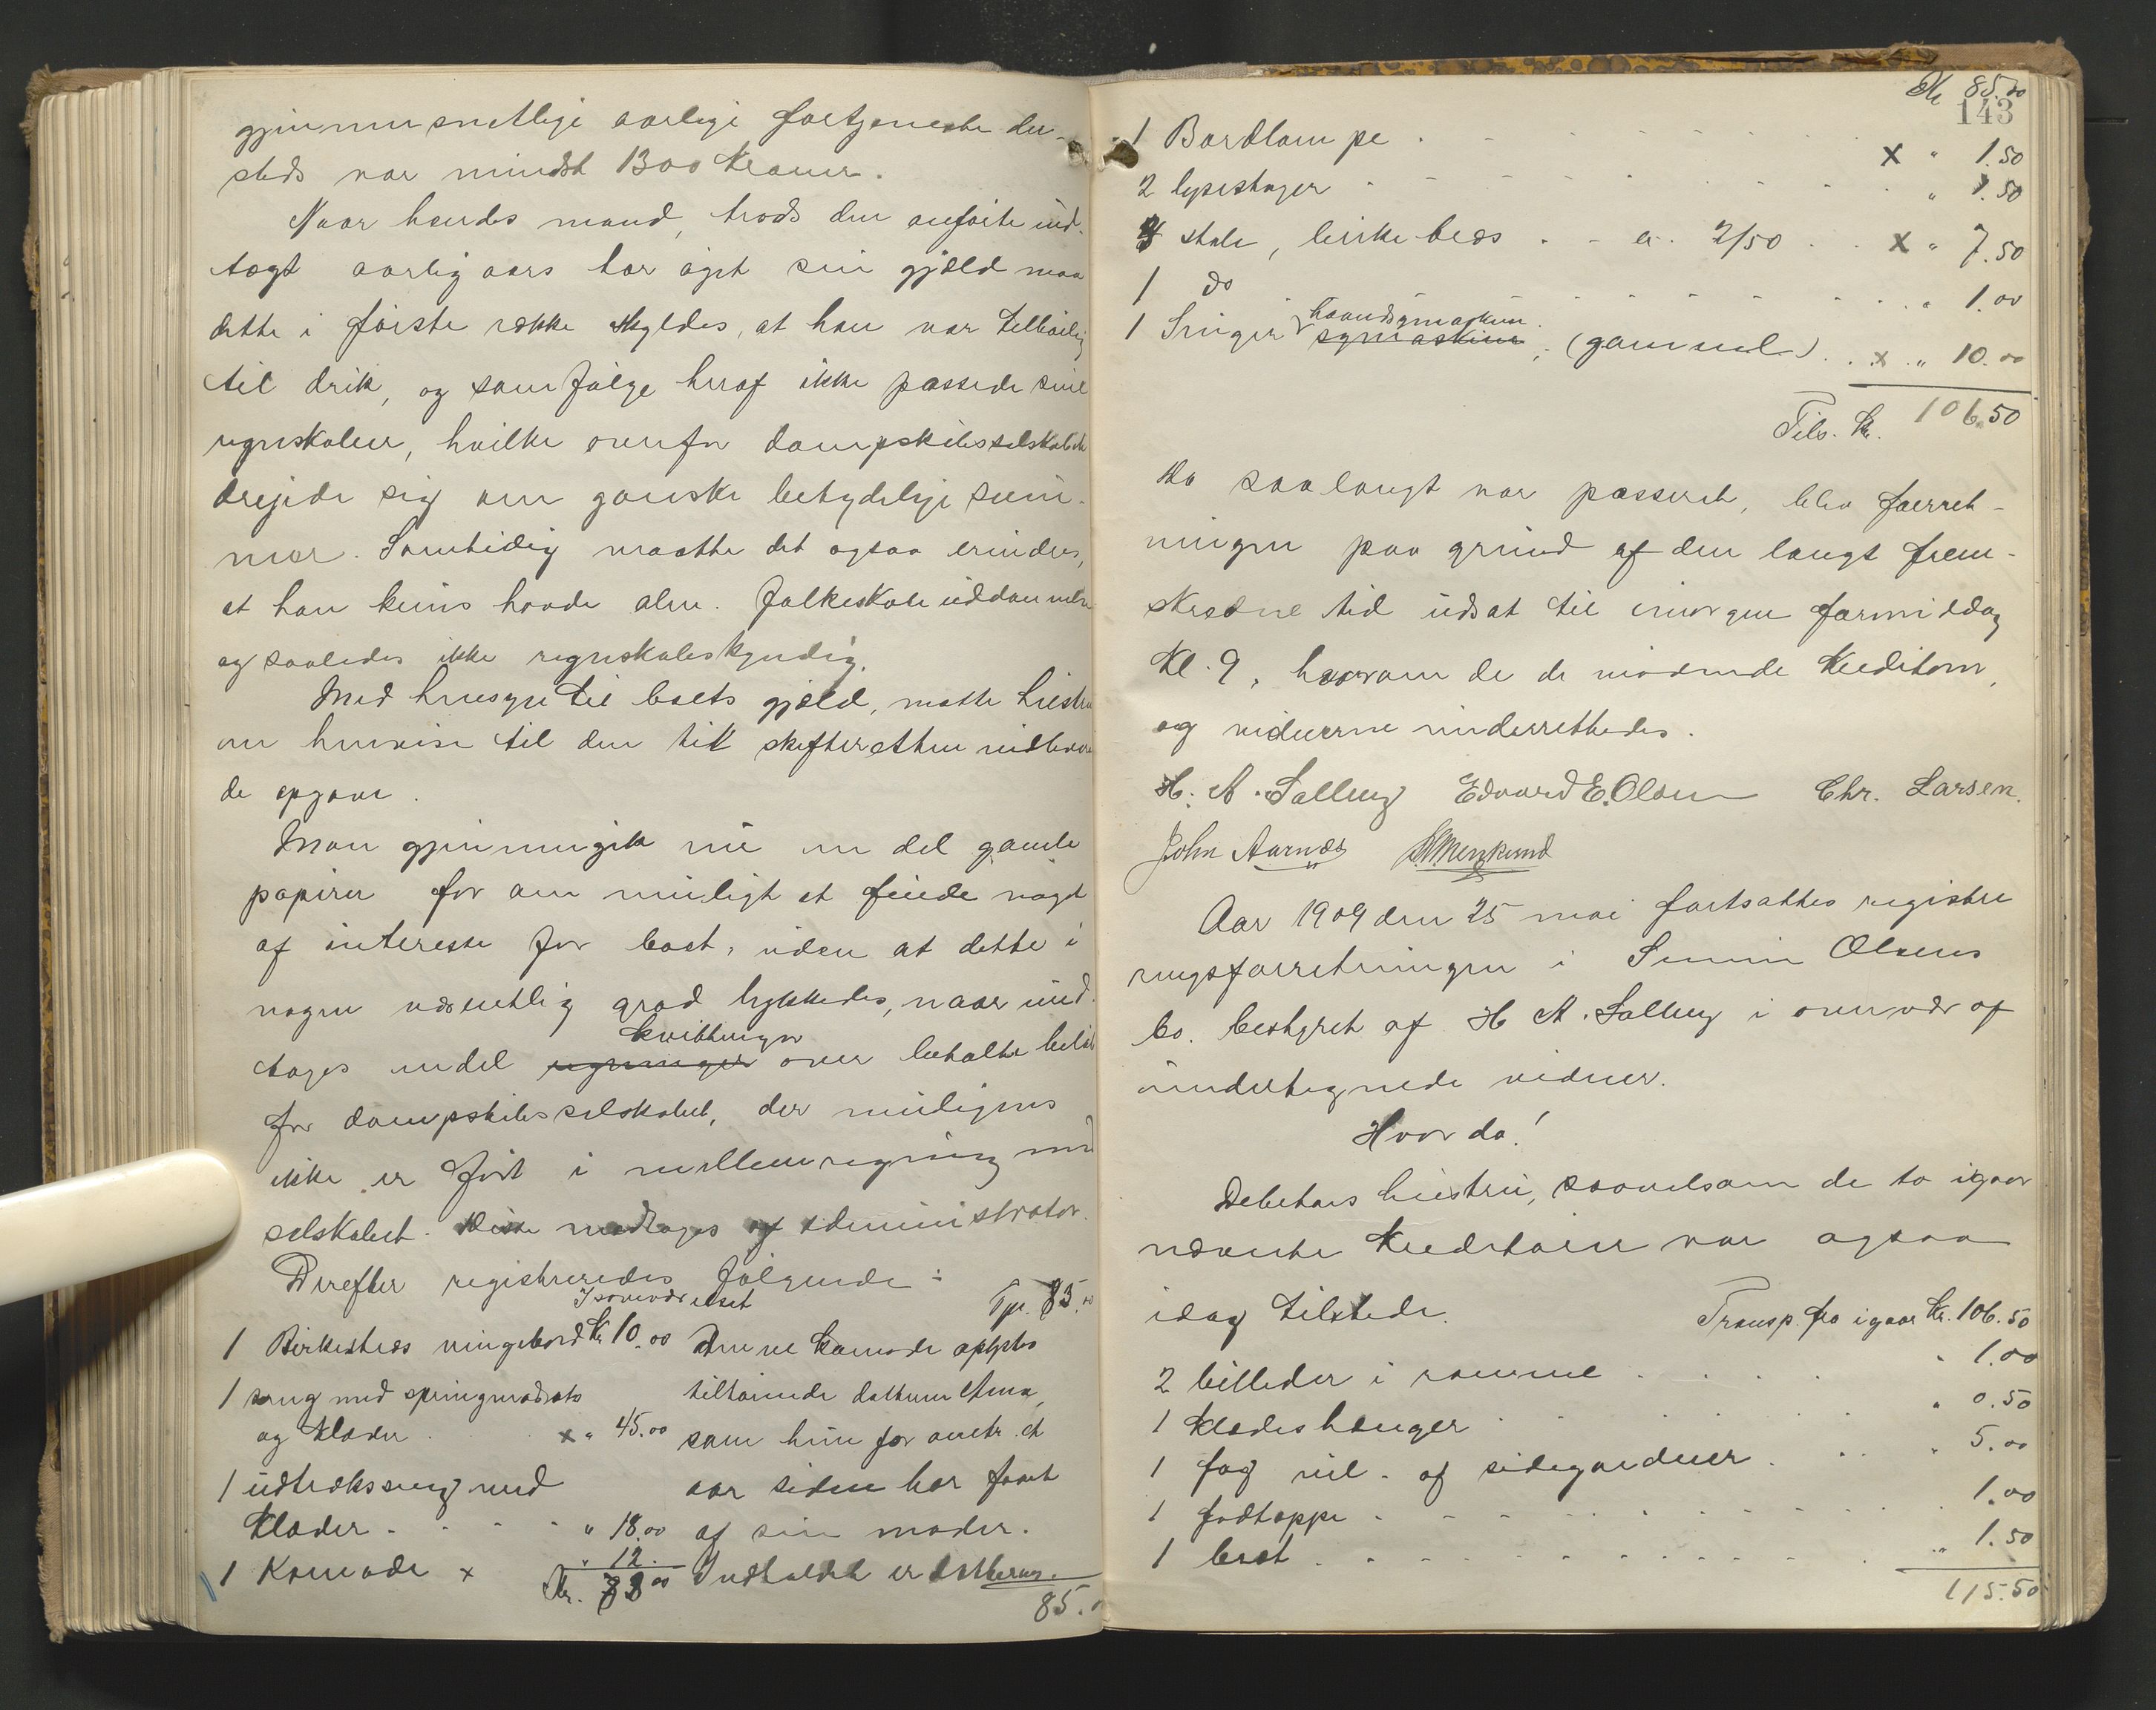 gjennemsnitlige aarlige fortjeneste der-
steds var mindst 1300 Kroner.
Naar hendes mand, trods den anførte ind-
tægt aarlig aars har øget sin gjæld maa
dette i første række skyldes, at han var tilbøielig
til drik, og som følge heraf ikke passede sine
regnskaber, hvilke overfor dampskibsselskabet
drejede sig om ganske betydelige sum-
mer. Samtidig maatte det ogsaa erindres,
at han kuns havde alm. folkeskole uddannelse
og saaledes ikke regnskabskyndig.
Med hensyn til boets gjæld, matte hustru
en henvise til den til skifteretten indlevere
de opgave.
Man gjennemgik nu en del gamle
papirer for om muligt at finde noget
af interesse for boet, uden at dette i
nogen væsentlig grad lykkedes, naar und-
kvitteringer
tages endel regninger over betalte beløb
for dampskibsselskabet, der muligens
ikke er ført i mellemregning med
selskabet. Disse modtoges af administrator.
Derefter registreredes følgende:
I soveværelset
Tp. 85.00
1 Birketræs vingebord Kr. 10.00
1 seng med springmadrats
og klæder x " 45.00
1 udtrækseng med
klæder " 18.00
1 Komode x " 12.
Kr. 83.00
Denne komode oplystes
tilhørende datteren Anna,
som hun for omtr. et
aar siden har faaet
af sin moder.
Indholdet er datterens.
85.0
Kr 85.00
143
1 Bordlampe x " 1.50
2 lysestager " 1.50
3 stole, birketræs a. 2/50 x " 7.50
1 do " 1.00
haandsymaskin
1 Singer symaskine, (gammel) x " 10.00
Tils. Kr. 106.50
Da saalangt var passeret, blev forret-
ningen paa grund af den langt frem-
skredne tid udsat til imorgen formiddag
Kl. 9, hvorom de de mødende Kreditorer,
og vidnerne underrettedes.
H. A. Salling Edvard E. Olsen Chr. Larsen.
John Aarnæs
Aar 1909 den 25 mai fortsattes registre
ringsforretningen i Olsens
bo. bestyret af H A. Salling i overvær af
undertegnede vidner.
Hvorda!
Debitors hustru, saavelsom de to igaar
nævnte Kreditorer var ogsaa
idag tilstede.
Transp. fra igaar Kr. 106.50
2 billeder i ramme " 1.00
1 klædeshenger " 0.50
1 fag uld. og sidegardiner " 5.00
1 fodtæppe 1.00
1 bræt " 1.50
115.50